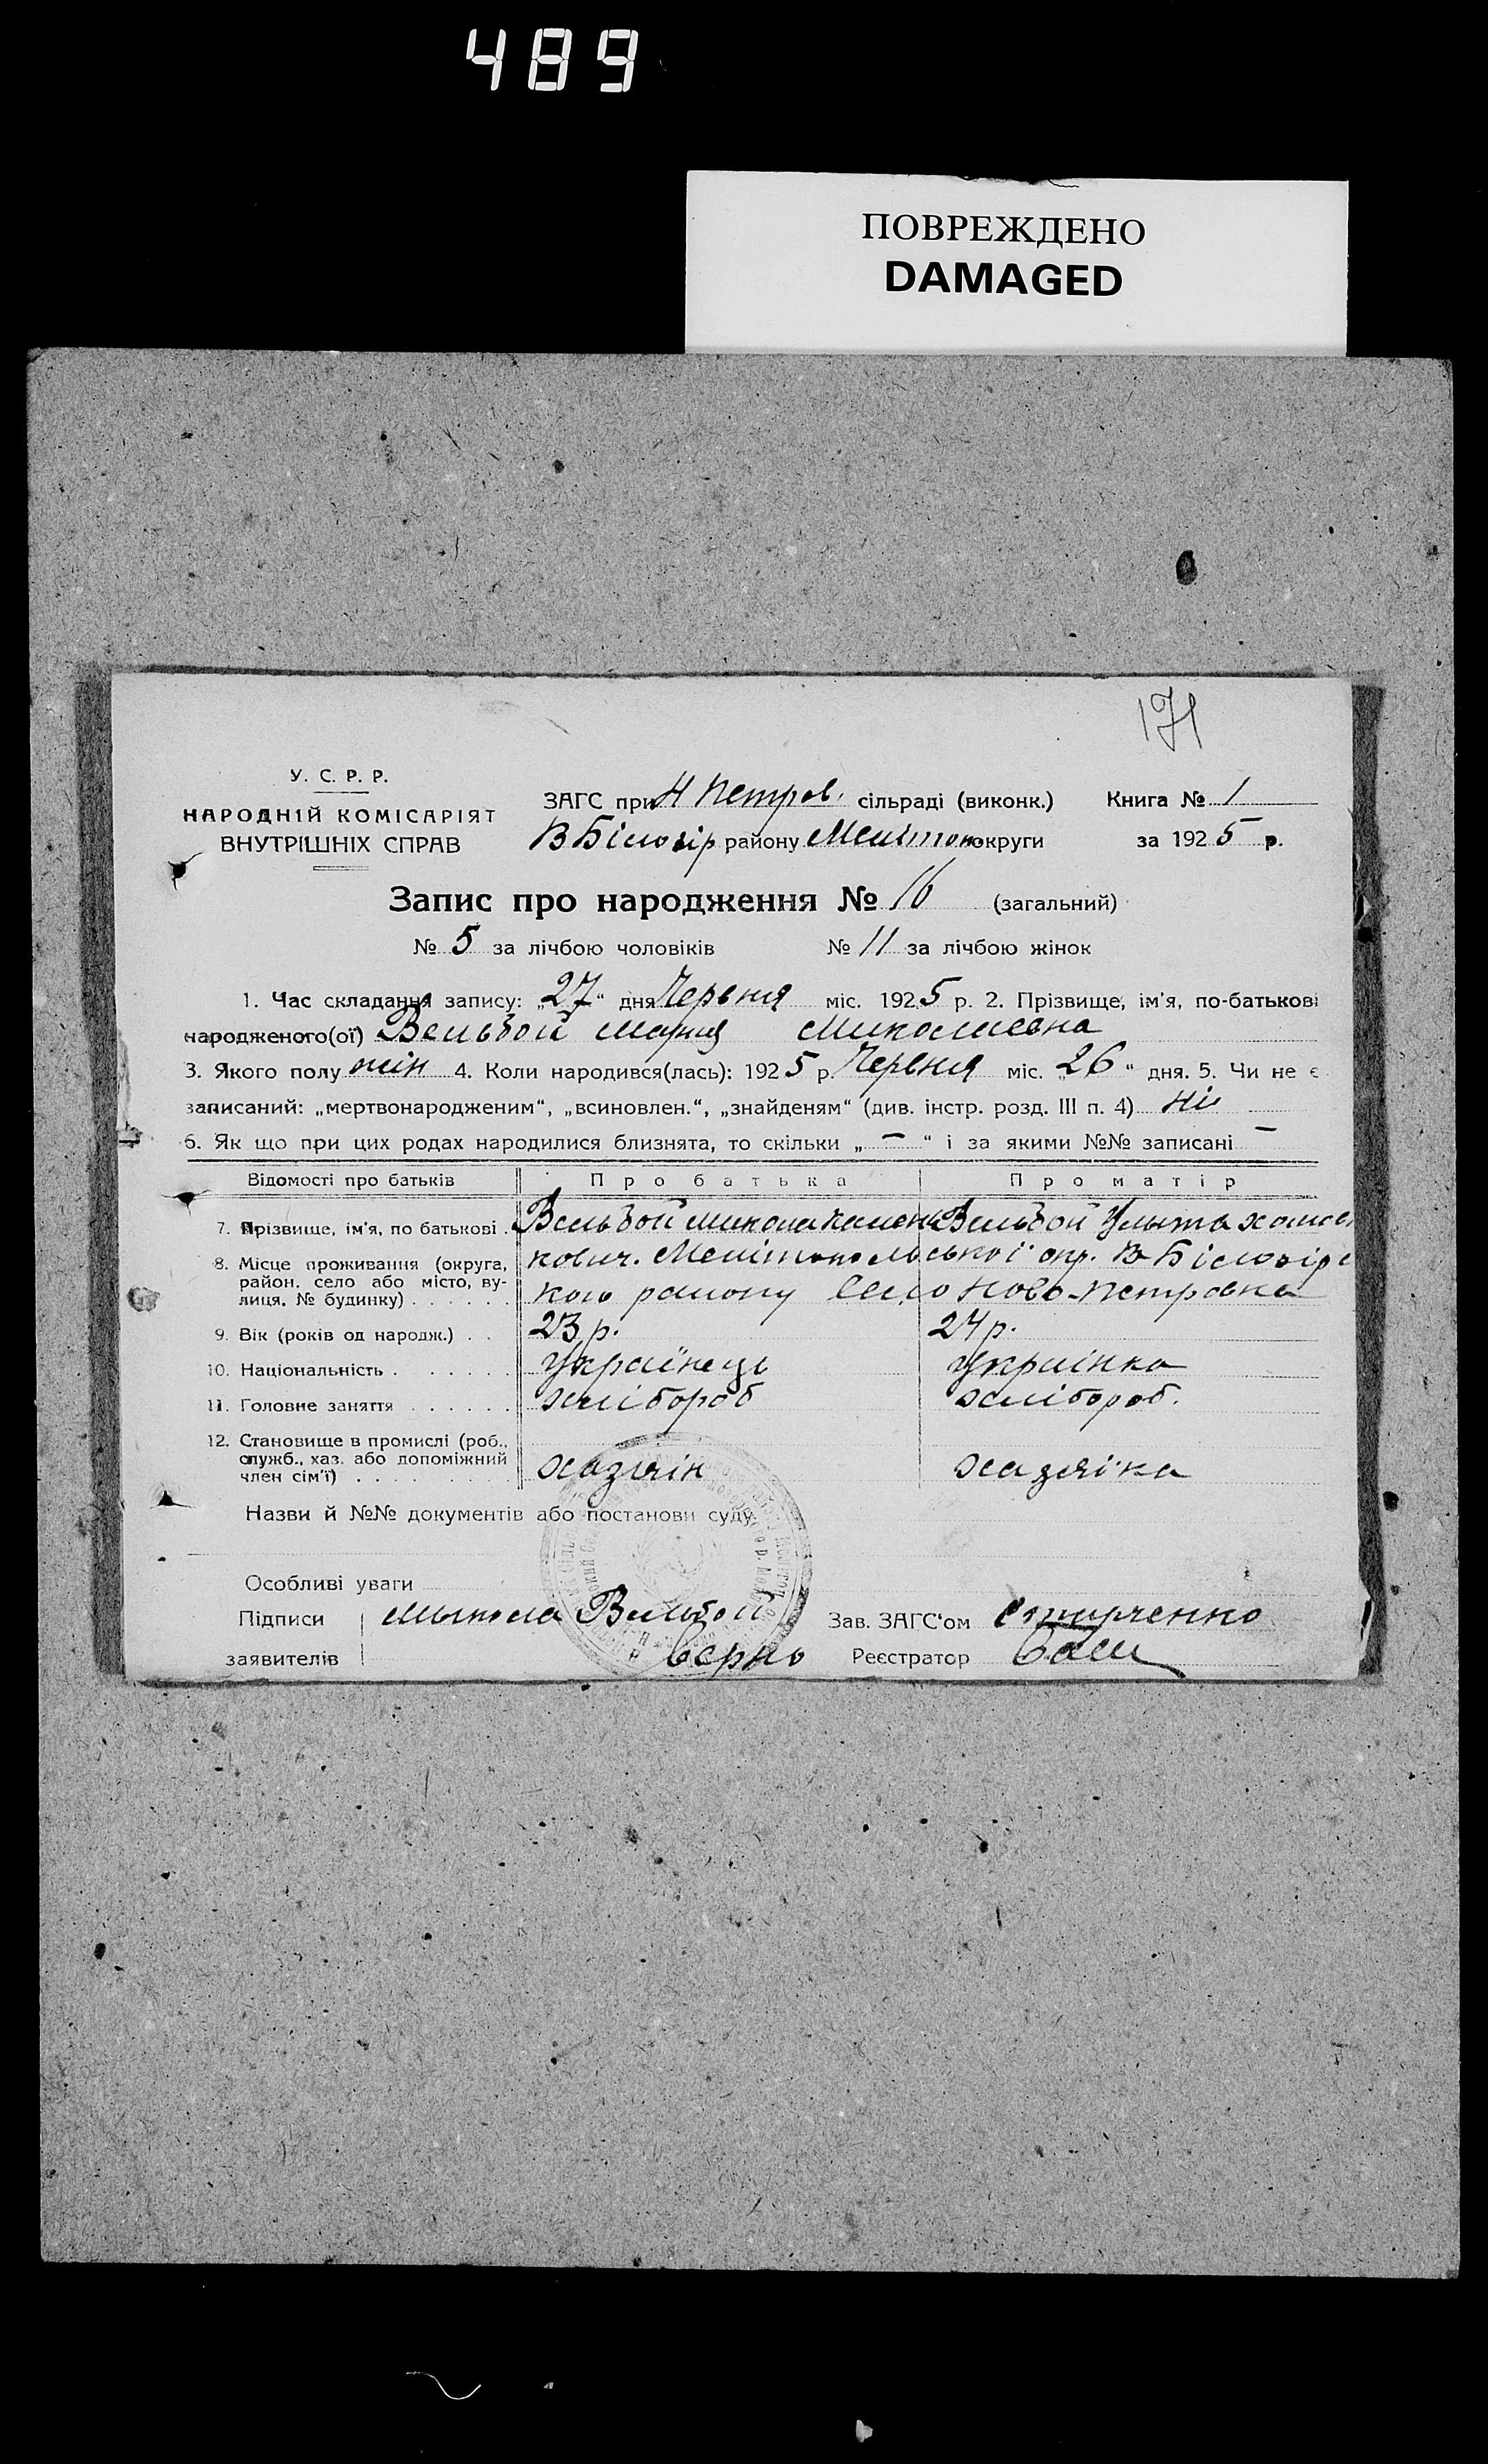 489
ПОВРЕЖДЕНО
DAMAGED
171
У. С. Р. Р.
НАРОДНІЙ КОМІСАРІЯТ
ВНУТРІШНІХ СПРАВ
ЗАГС при Н Петров. сільраді (виконк.) Книга № 1
В Білозір району Мелітоп округи за 1925 р.
Запис про народження № 16 (загальний)
№ 5 за лічбою чоловіків № 11 за лічбою жінок
1. Час складання запису: „27“ дня Червня міс. 1925 р. 2. Прізвище, ім'я, по-батькові
народженого(ої) Вельбой Мария Миколаевна
3. Якого полу жін 4. Коли народився(лась): 1925 р. Червня міс. „26“ дня. 5. Чи не є
записаний: „мертвонародженим“, „всиновлен.“, „знайденям“ (див. інстр. розд. III п. 4) ні
6. Як що при цих родах народилися близнята, то скільки „ — “ і за якими №№ записані —
Відомості про батьків Про батька Про матір
7. Прізвище, ім'я, по батькові . Вельбой Микола Вельбой
8. Місце проживання (округа, кович. Мелітопольської окр. В Білозірс
район, село або місто, ву-
лиця, № будинку) . . . . . . кого району Село Ново-Петровка
9. Вік (років од народж.) . . 23 р. 24 р.
10. Національність . . . . . . Українець Українка
11. Головне заняття . . . . . . хлібороб хлібороб.
12. Становище в промислі (роб.,
служб., хаз. або допоміжний
член сім'ї) . . . . . . хазяїн хазяїка
Назви й №№ документів або постанови суду
Особливі уваги
Підписи Мыкола Вельбой Зав. ЗАГС'ом
заявителів Верно Реєстратор